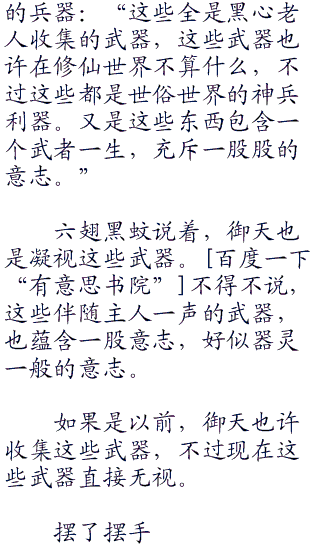 的兵器：“这些全是黑心老
人收集的武器，这些武器也
许在修仙世界不算什么，不
过这些都是世俗世界的神兵
利器。又是这些东西包含一
个武者一生，充斥一股股的
意志。”
六翅黑蚊说着，御天也
是凝视这些武器。[百度一下
“有意思书院”]不得不说，
这些伴随主人一声的武器，
也蕴含一股意志，好似器灵
一般的意志。
如果是以前，御天也许
收集这些武器，不过现在这
些武器直接无视。
摆了摆手